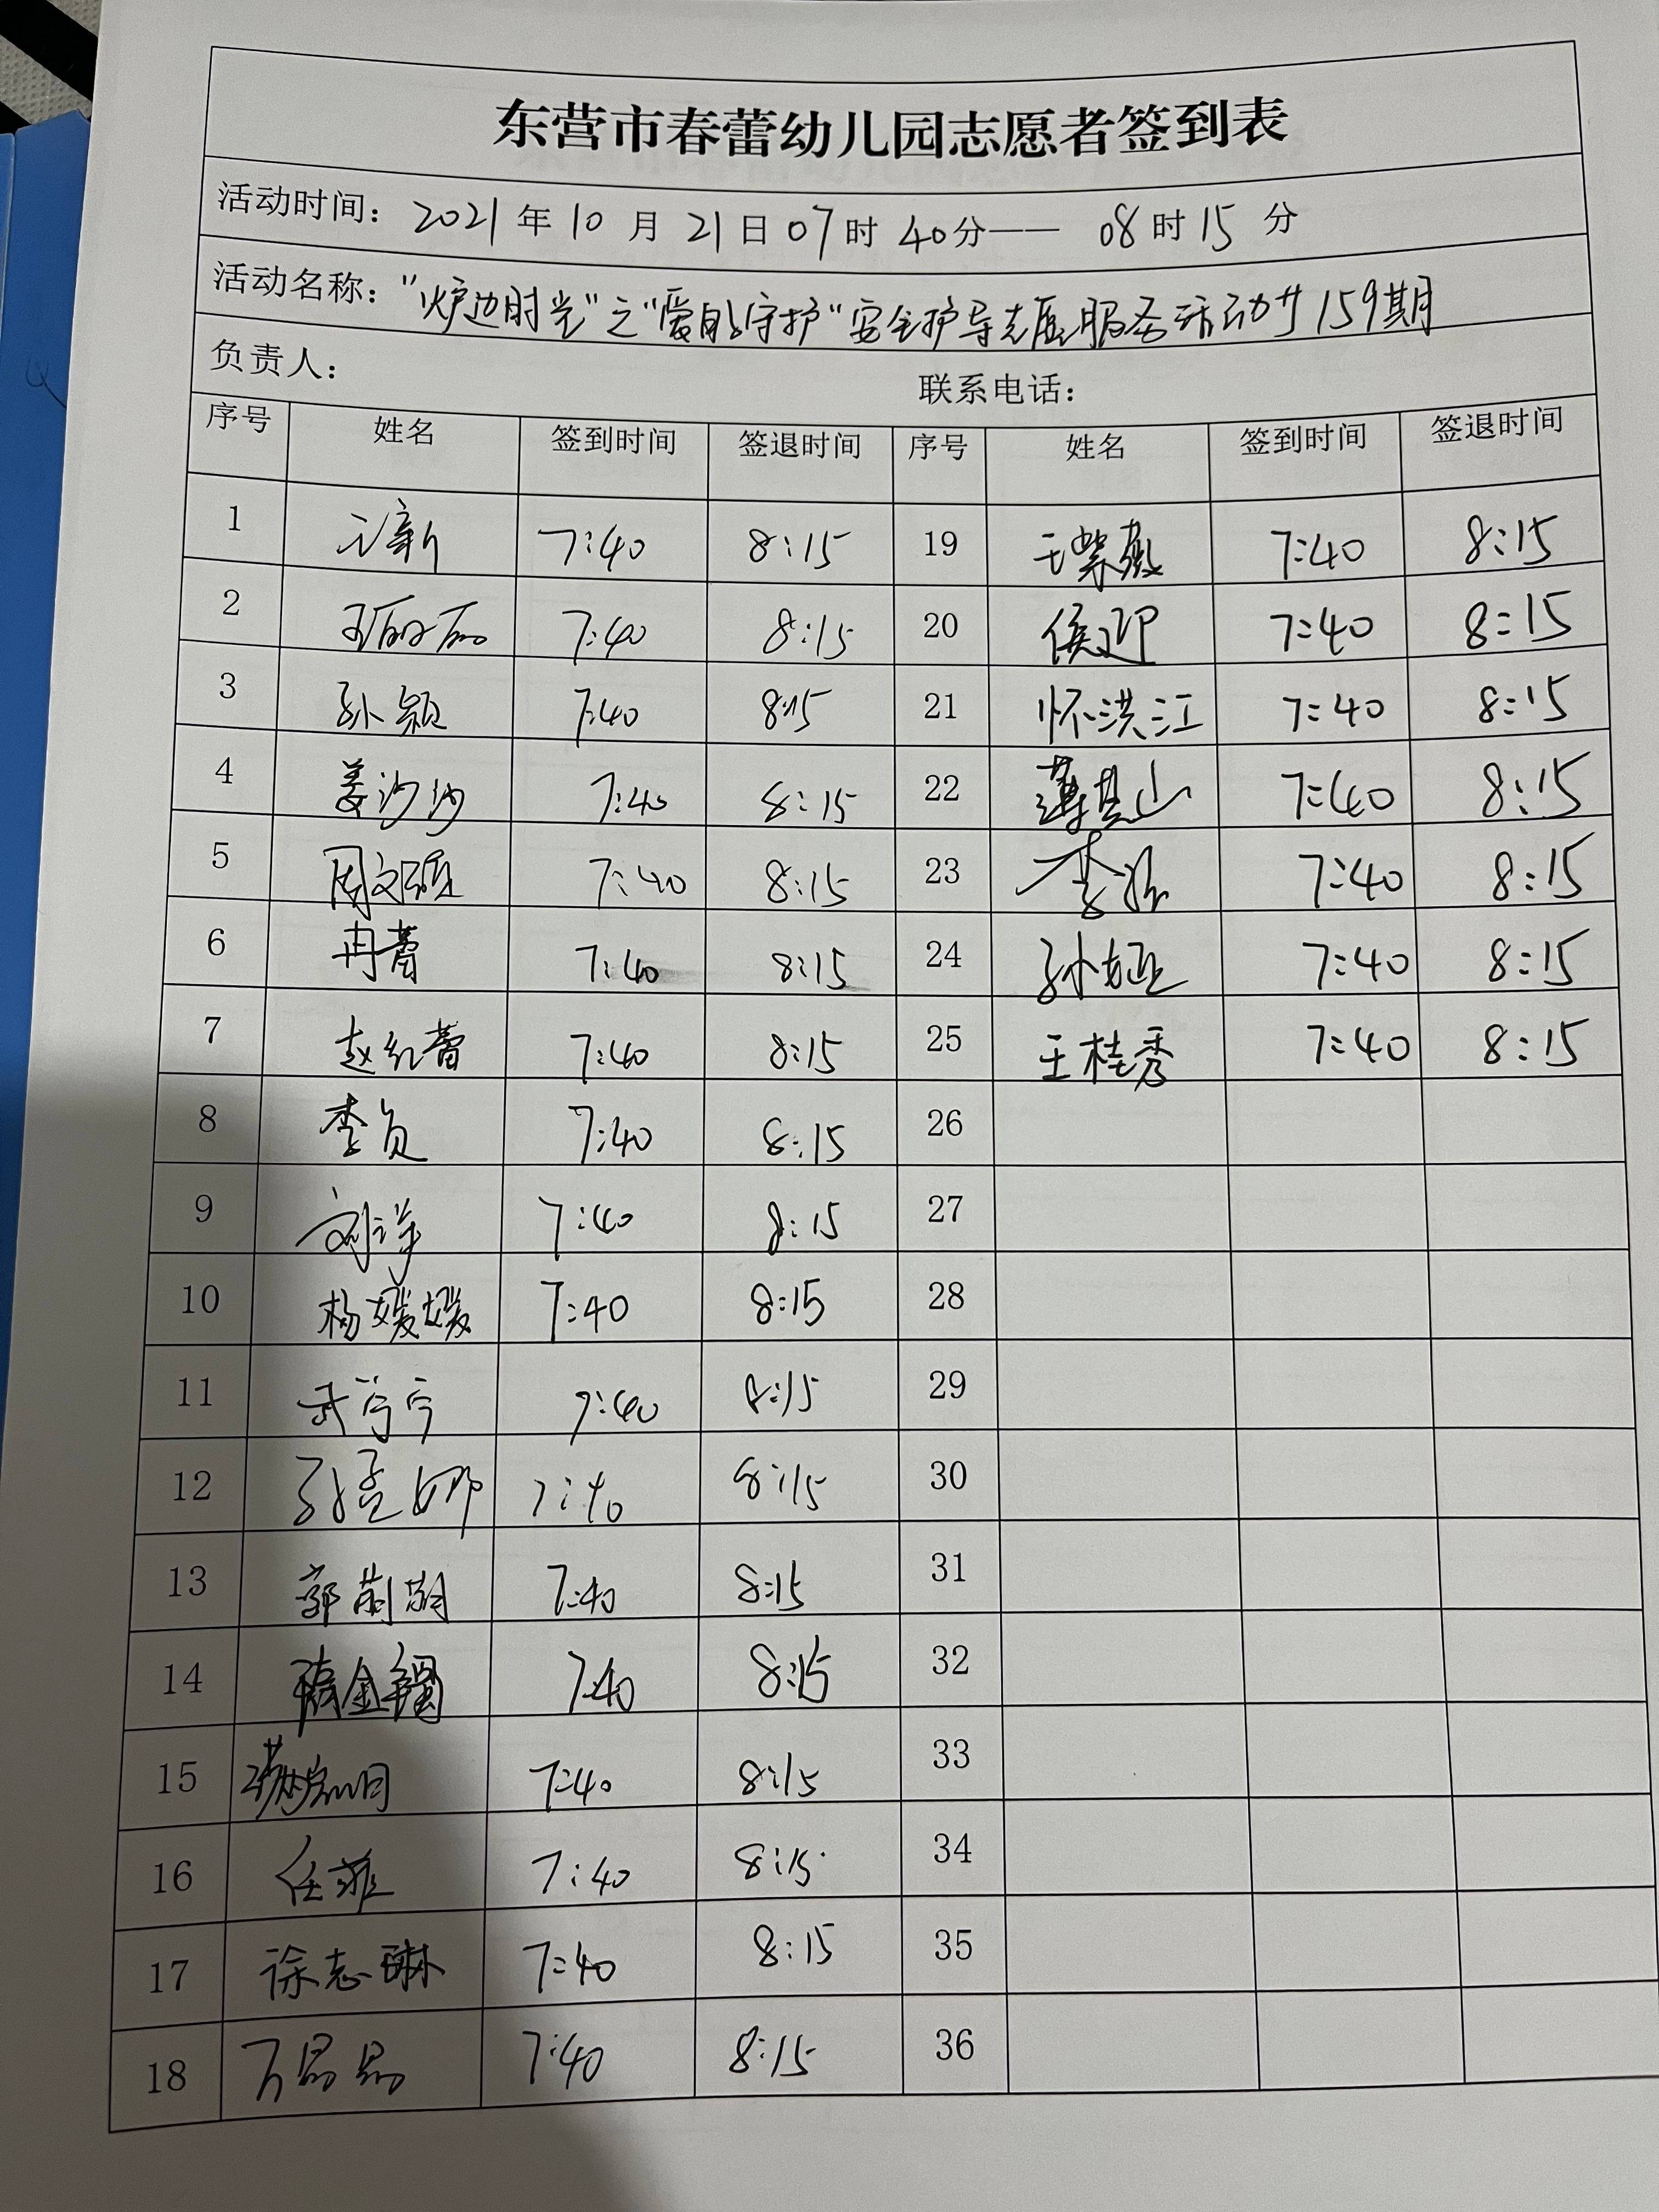 东营市春蕾幼儿园志愿者签到表
活动时间：2021年10月21日07时40分—— 08时15分
活动名称："炉边时光"之"爱的守护"安全护导志愿服务活动廿159期
负责人： 联系电话：
序号 姓名 签到时间 签退时间 序号 姓名 签到时间 签退时间
1 7:40 8:15 19 王紫薇 7:40 8:15
2 7:40 8:15 20 侯迎 7:40 8:15
3 孙颖 7:40 8:15 21 怀洪江 7:40 8:15
4 姜沙沙 7:40 8:15 22 7:40 8:15
5 周文硕 7:40 8:15 23 李 7:40 8:15
6 冉蕾 7:40 8:15 24 孙娅 7:40 8:15
7 赵红蕾 7:40 8:15 25 王桂秀 7:40 8:15
8 李贞 7:40 8:15 26
9 刘洋 7:40 8:15 27
10 杨媛媛 7:40 8:15 28
11 武宁宁 7:40 8:15 29
12 孙孟娜 7:40 8:15 30
13 郭 7:40 8:15 31
14 7:40 8:15 32
15 7:40 8:15 33
16 任菲 7:40 8:15 34
17 徐志琳 7:40 8:15 35
18 万昌昌 7:40 8:15 36